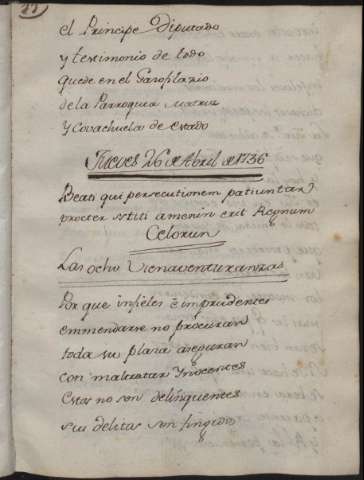 el Principe Diputado
y testimonio de todo
quede en el Gasoplazio
de la Parroquia Matris
y Covachuela de estado
Jueves 26 de Abril de 1736
Beati qui persecutionem patiuntur
procter
Regnum
Celorun
Las ocho Vienaventuranzas
Por que infieles è imprudentes
emmendarse no procuran
toda su plana aseguran
con maltratar Ynocentes
Estos no son delinquentes
sus delitos son fingidos